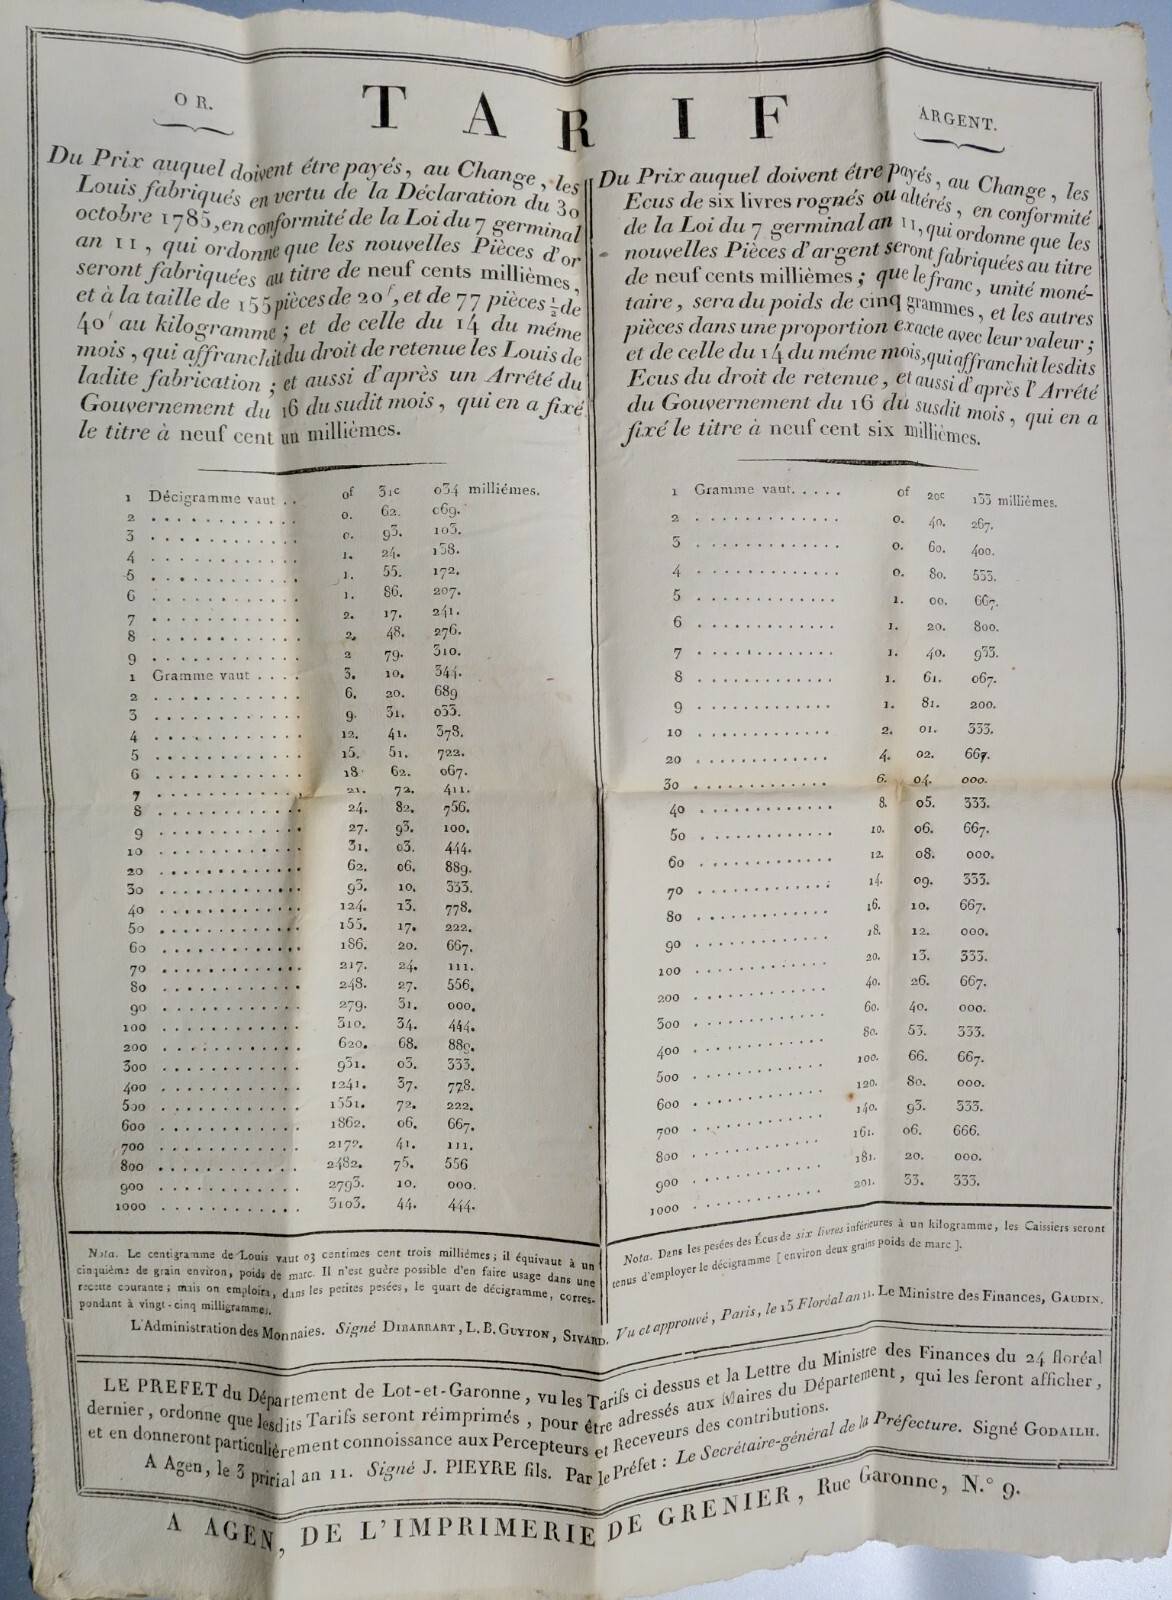 TARIF
OR.
Du Prix auquel doivent étre payés, au Change, les
Louis fabriqués en vertu de la Déclaration du 30
octobre 1785, en conformité de la Loi du 7 germinal
an 11, qui ordonne que les nouvelles Pièces d'or
seront fabriquées au titre de neuf cents millièmes,
et à la taille de 155 pièces de 20f, et de 77 pièces ½ de
40f au kilogramme; et de celle du 14 du même
mois, qui affranchit du droit de retenue les Louis de
ladite fabrication; et aussi d'après un Arrêté du
Gouvernement du 16 du sudit mois, qui en a fixé
le titre à neuf cent un millièmes.
1 Décigramme vaut . . 0f 31c 034 milliémes.
2 . . . . . . . . . . . . 0. 62. 069.
3 . . . . . . . . . . . . 0. 93. 103.
4 . . . . . . . . . . . . 1. 24. 138.
5 . . . . . . . . . . . . 1. 55. 172.
6 . . . . . . . . . . . . 1. 86. 207.
7 . . . . . . . . . . . . 2. 17. 241.
8 . . . . . . . . . . . . 2. 48. 276.
9 . . . . . . . . . . . . 2 79. 310.
1 Gramme vaut . . . . 3. 10. 344.
2 . . . . . . . . . . . . 6. 20. 689
3 . . . . . . . . . . . . 9. 31. 033.
4 . . . . . . . . . . . . 12. 41. 378.
5 . . . . . . . . . . . . 15. 51. 722.
6 . . . . . . . . . . . . 18. 62. 067.
7 . . . . . . . . . . . . 21. 72. 411.
8 . . . . . . . . . . . . 24. 82. 756.
9 . . . . . . . . . . . . 27. 93. 100.
10 . . . . . . . . . . . . 31. 03. 444.
20 . . . . . . . . . . . . 62. 06. 889.
30 . . . . . . . . . . . . 93. 10. 333.
40 . . . . . . . . . . . . 124. 13. 778.
50 . . . . . . . . . . . . 155. 17. 222.
60 . . . . . . . . . . . . 186. 20. 667.
70 . . . . . . . . . . . . 217. 24. 111.
80 . . . . . . . . . . . . 248. 27. 556.
90 . . . . . . . . . . . . 279. 31. 000.
100 . . . . . . . . . . . . 310. 34. 444.
200 . . . . . . . . . . . . 620. 68. 889.
300 . . . . . . . . . . . . 931. 03. 333.
400 . . . . . . . . . . . . 1241. 37. 778.
500 . . . . . . . . . . . . 1551. 72. 222.
600 . . . . . . . . . . . . 1862. 06. 667.
700 . . . . . . . . . . . . 2172. 41. 111.
800 . . . . . . . . . . . . 2482. 75. 556
900 . . . . . . . . . . . . 2793. 10. 000.
1000 . . . . . . . . . . . . 3103. 44. 444.
Nota. Le centigramme de Louis vaut 03 centimes cent trois millièmes; il équivaut à un
cinquième de grain environ, poids de marc. Il n'est guère possible d'en faire usage dans une
recette courante; mais on emploira, dans les petites pesées, le quart de décigramme, corres-
pondant à vingt-cinq milligrammes.
L'Administration des Monnaies. Signé DIBARRART, L. B. GUYTON, SIVARD.
ARGENT.
Du Prix auquel doivent étre payés, au Change, les
Ecus de six livres rognés ou altérés, en conformité
de la Loi du 7 germinal an 11, qui ordonne que les
nouvelles Pièces d'argent seront fabriquées au titre
de neuf cents millièmes; que le franc, unité moné-
taire, sera du poids de cinq grammes, et les autres
pièces dans une proportion exacte avec leur valeur;
et de celle du 14 du même mois, qui affranchit lesdits
Ecus du droit de retenue, et aussi d'après l'Arrêté
du Gouvernement du 16 du susdit mois, qui en a
fixé le titre à neuf cent six millièmes.
1 Gramme vaut. . . . . 0f 20c 133 millièmes.
2 . . . . . . . . . . . . . 0. 40. 267.
3 . . . . . . . . . . . . . 0. 60. 400.
4 . . . . . . . . . . . . . 0. 80. 533.
5 . . . . . . . . . . . . . 1. 00. 667.
6 . . . . . . . . . . . . . 1. 20. 800.
7 . . . . . . . . . . . . . 1. 40. 933.
8 . . . . . . . . . . . . . 1. 61. 067.
9 . . . . . . . . . . . . . 1. 81. 200.
10 . . . . . . . . . . . . . 2. 01. 333.
20 . . . . . . . . . . . . . 4. 02. 667.
30 . . . . . . . . . . . . . 6. 04. 000.
40 . . . . . . . . . . . . . 8. 05. 333.
50 . . . . . . . . . . . . . 10. 06. 667.
60 . . . . . . . . . . . . . 12. 08. 000.
70 . . . . . . . . . . . . . 14. 09. 333.
80 . . . . . . . . . . . . . 16. 10. 667.
90 . . . . . . . . . . . . . 18. 12. 000.
100 . . . . . . . . . . . . . 20. 13. 333.
200 . . . . . . . . . . . . . 40. 26. 667.
300 . . . . . . . . . . . . . 60. 40. 000.
400 . . . . . . . . . . . . . 80. 53. 333.
500 . . . . . . . . . . . . . 100. 66. 667.
600 . . . . . . . . . . . . . 120. 80. 000.
700 . . . . . . . . . . . . . 140. 93. 333.
800 . . . . . . . . . . . . . 161. 06. 666.
900 . . . . . . . . . . . . . 181. 20. 000.
1000 . . . . . . . . . . . . . 201. 33. 333.
Nota. Dans les pesées des Écus de six livres inférieures à un kilogramme, les Caissiers seront
tenus d'employer le décigramme [ environ deux grains poids de marc ].
Vu et approuvé, Paris, le 15 Floréal an 11. Le Ministre des Finances, GAUDIN.
LE PREFET du Département de Lot-et-Garonne, vu les Tarifs ci dessus et la Lettre du Ministre des Finances du 24 floréal
dernier, ordonne que lesdits Tarifs seront réimprimés, pour être adressés aux Maires du Département, qui les feront afficher,
et en donneront particulièrement connoissance aux Percepteurs et Receveurs des contributions.
A Agen, le 3 pririal an 11. Signé J. PIEYRE fils. Par le Préfet: Le Secrétaire-général de la Préfecture. Signé GODAILH.
A AGEN, DE L'IMPRIMERIE DE GRENIER, Rue Garonne, N.° 9.